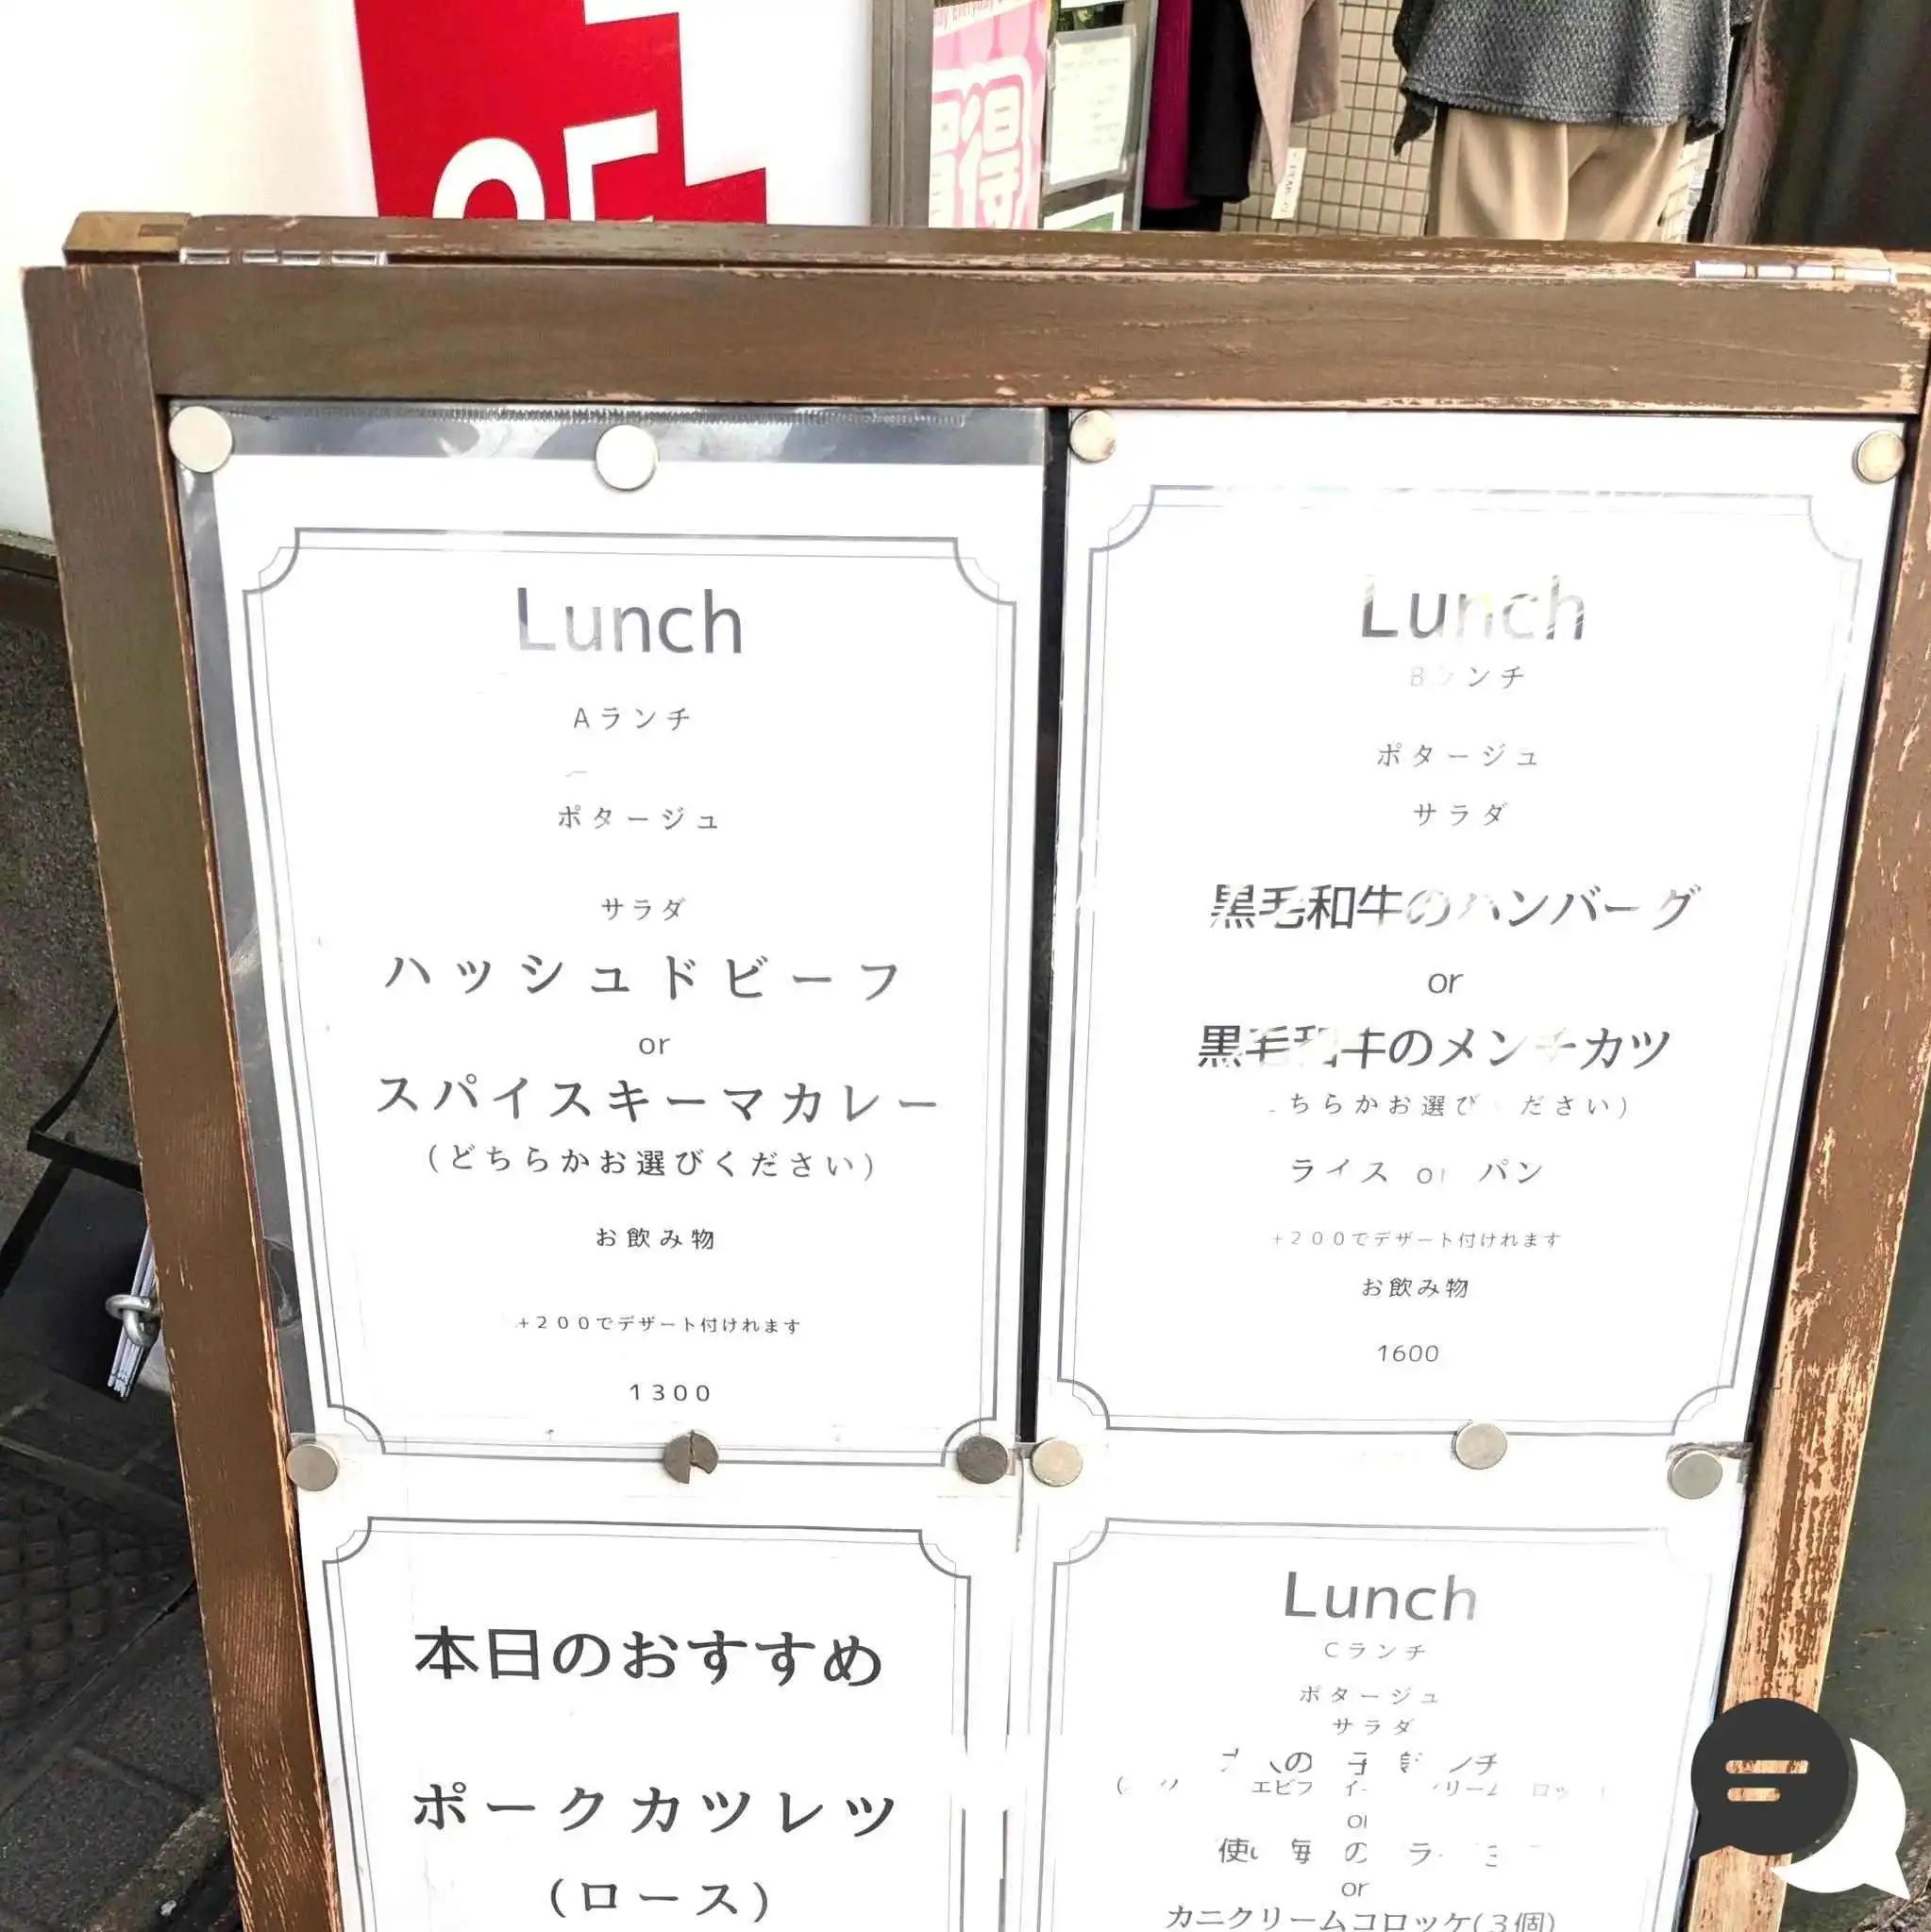 買得
Lunch
Aランチ
ポタージュ
サラダ
ハッシュドビーフ
or
スパイスキーマカレー
(どちらかお選びください)
お飲み物
+200でデザート付けれます
1300
Lunch
Bランチ
ポタージュ
サラダ
黒毛和牛のハンバーグ
or
黒毛和牛のメンチカツ
ちらかお選び ださい)
ライス or パン
+200でデザート付けれます
お飲み物
1600
本日のおすすめ
ポークカツレツ
(ロース)
Lunch
Cランチ
ポタージュ
サラダ
エビフ
or
or
カニクリームコロッケ(3個)